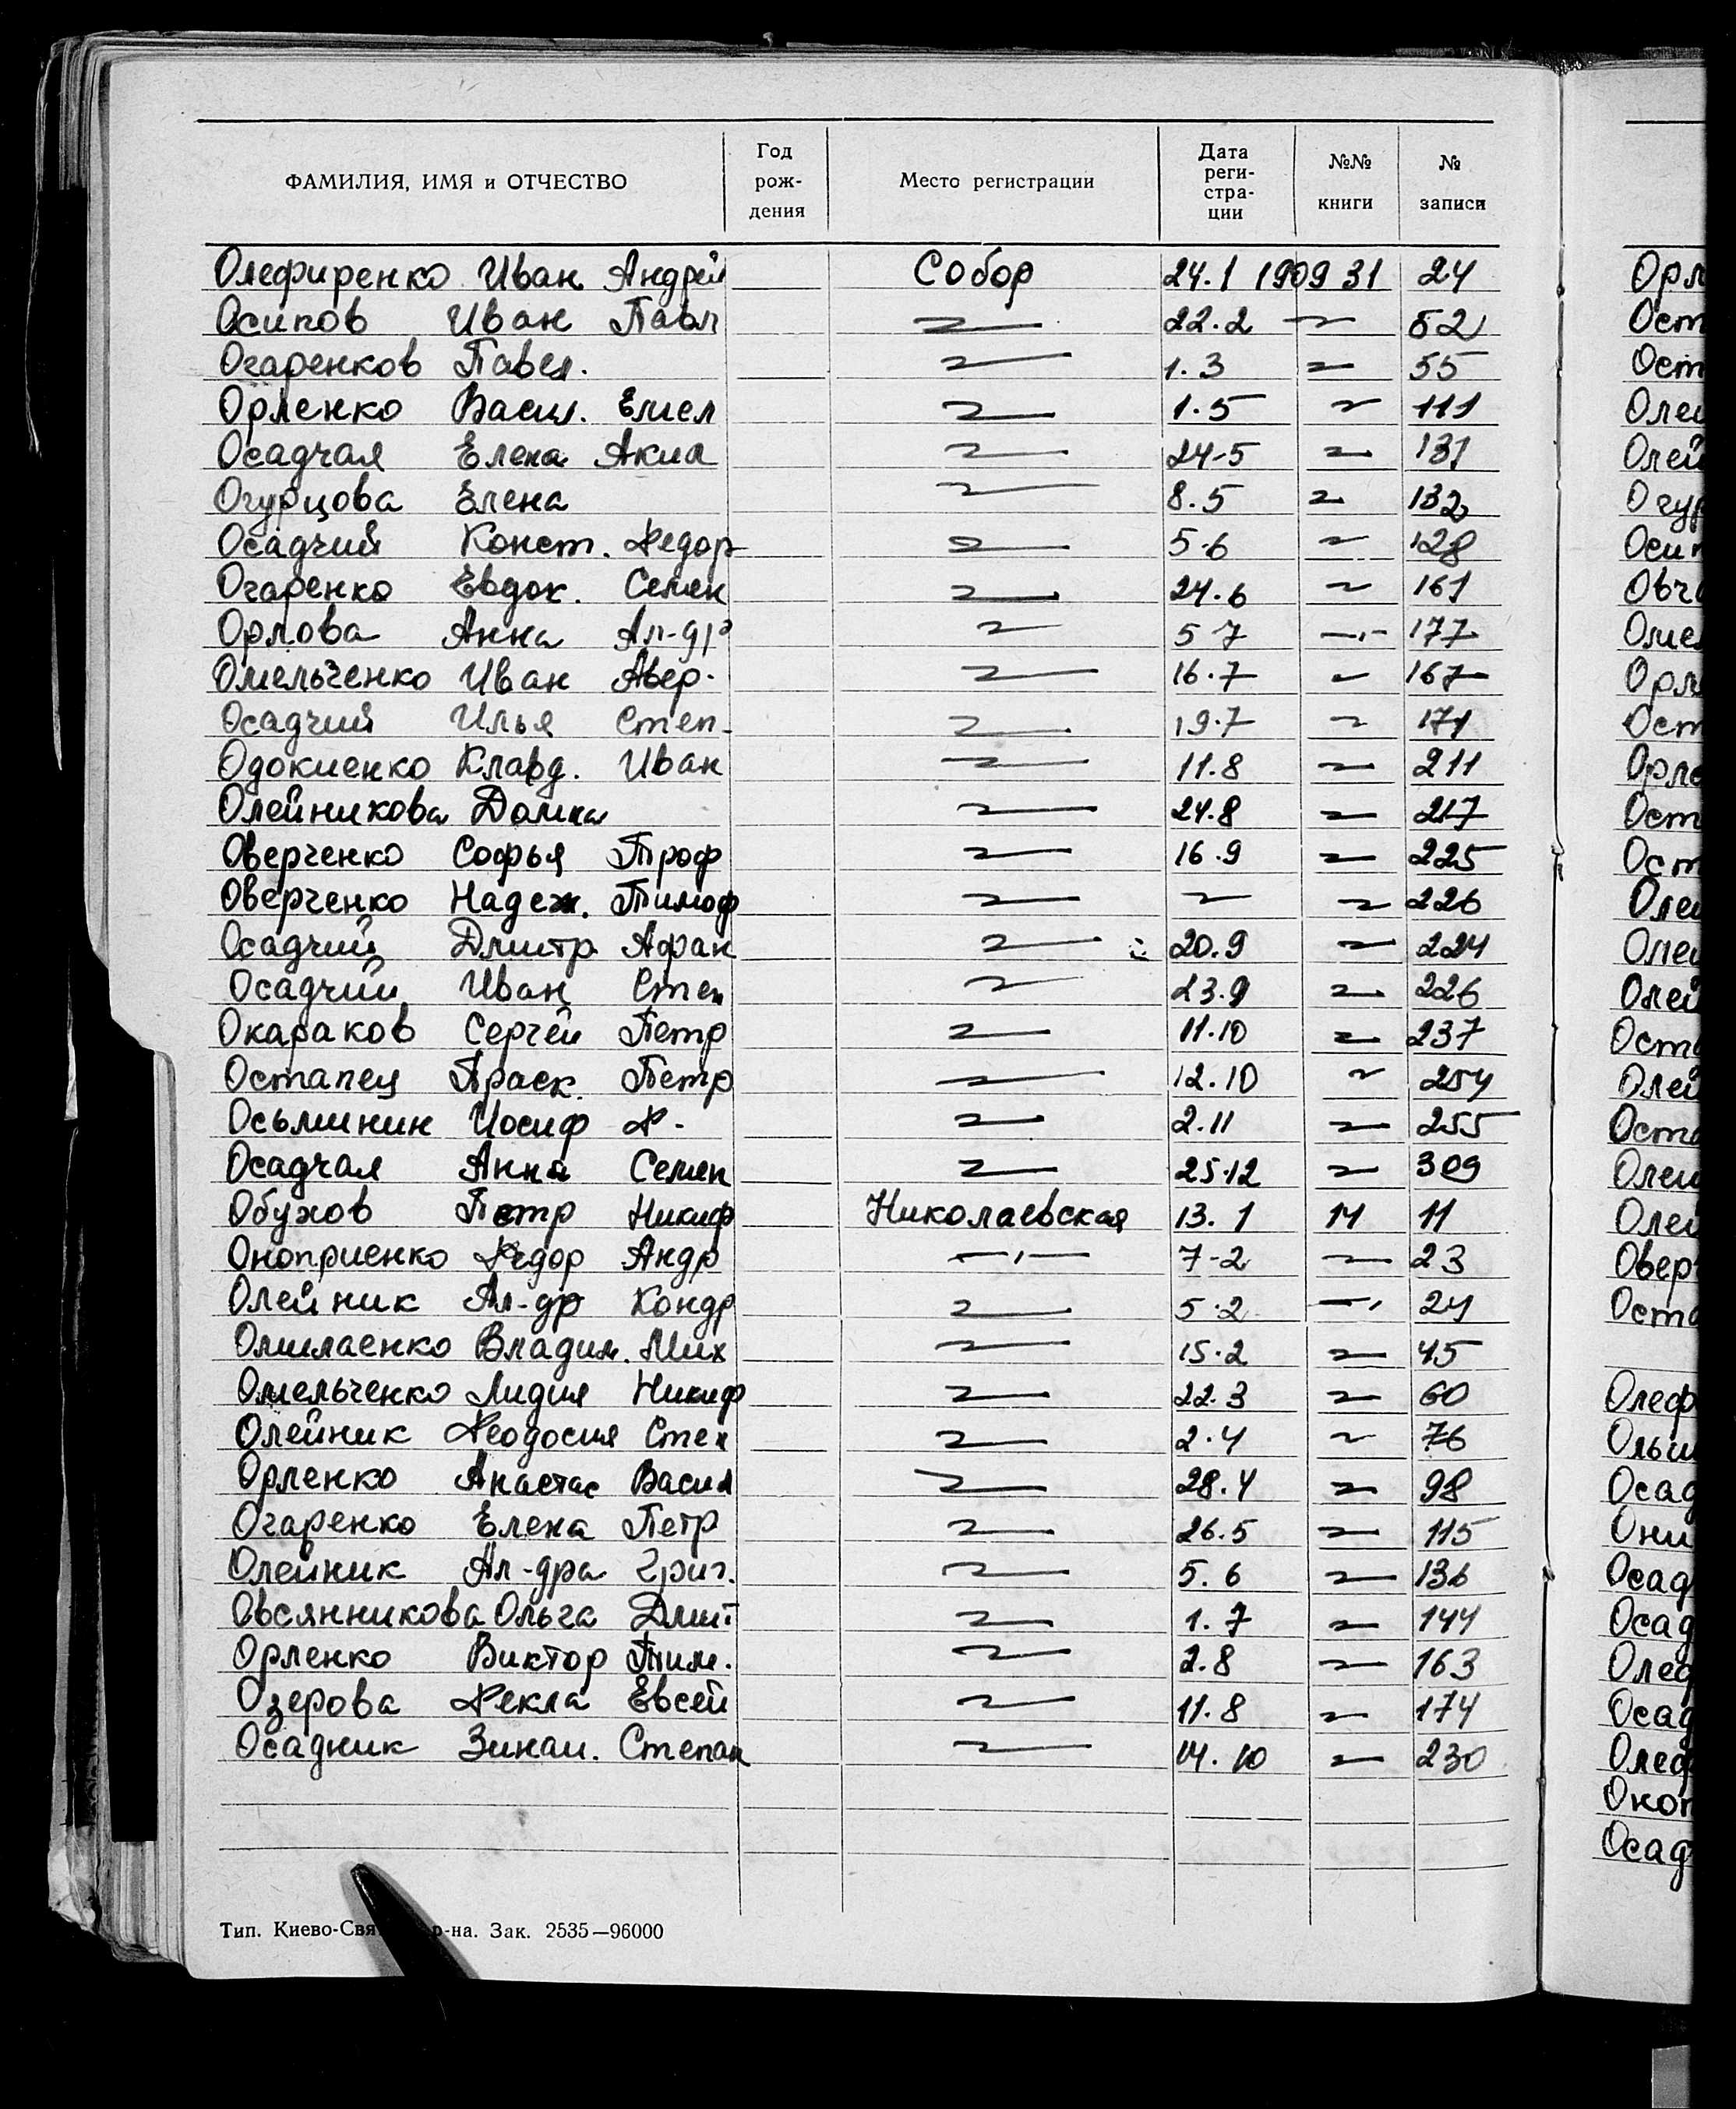 ФАМИЛИЯ, ИМЯ и ОТЧЕСТВО Год рождения Место регистрации Дата регистрации №№ книги № записи
Олефиренко Иван Андрей Собор 24.1 1909 31 24
Осипов Иван Павл 22.2 52
Огаренков Павел. 1.3 55
Орленко Васил. Емел 1.5 111
Осадчая Елена Акил 24-5 131
Огурцова Елена 8.5 132
Осадчий Конст. Федор 5-6 128
Огаренко Евдок. Семен 24.6 161
Орлова Анна Ал-др 5 7 —"— 177
Омельченко Иван Авер. 16.7 167
Осадчий Илья Степ. 19.7 171
Одокиенко Клавд. Иван 11.8 211
Олейникова Домна 24.8 217
Оверченко Софья Троф 16.9 225
Оверченко Надеж. Тимоф 226
Осадчий Дмитр Афан 20.9 224
Осадчий Иван Степ 23.9 226
Окараков Сергей Петр 11.10 237
Остапец Праск. Петр 12.10 254
Осьминин Иосиф Ф. 2.11 255
Осадчая Анна Семен 25.12 309
Обухов Петр Никиф Николаевская 13.1 14 11
Оноприенко Федор Андр —"— 7-2 23
Олейник Ал-др Кондр 5.2 24
Омилаенко Владим. Мих 15.2 45
Омельченко Лидия Никиф 22.3 60
Олейник Феодосия Степ 2.4 76
Орленко Анастас Васил 28.4 98
Огаренко Елена Петр 26.5 115
Олейник Ал-дра Григ. 5.6 136
Овсянникова Ольга Дмит 1.7 144
Орленко Виктор Тим. 2.8 163
Озерова Фекла Евсей 11.8 174
Осадник Зинаи. Степан 14.10 230
Тип. Киево-Свя р-на. Зак. 2535—96000